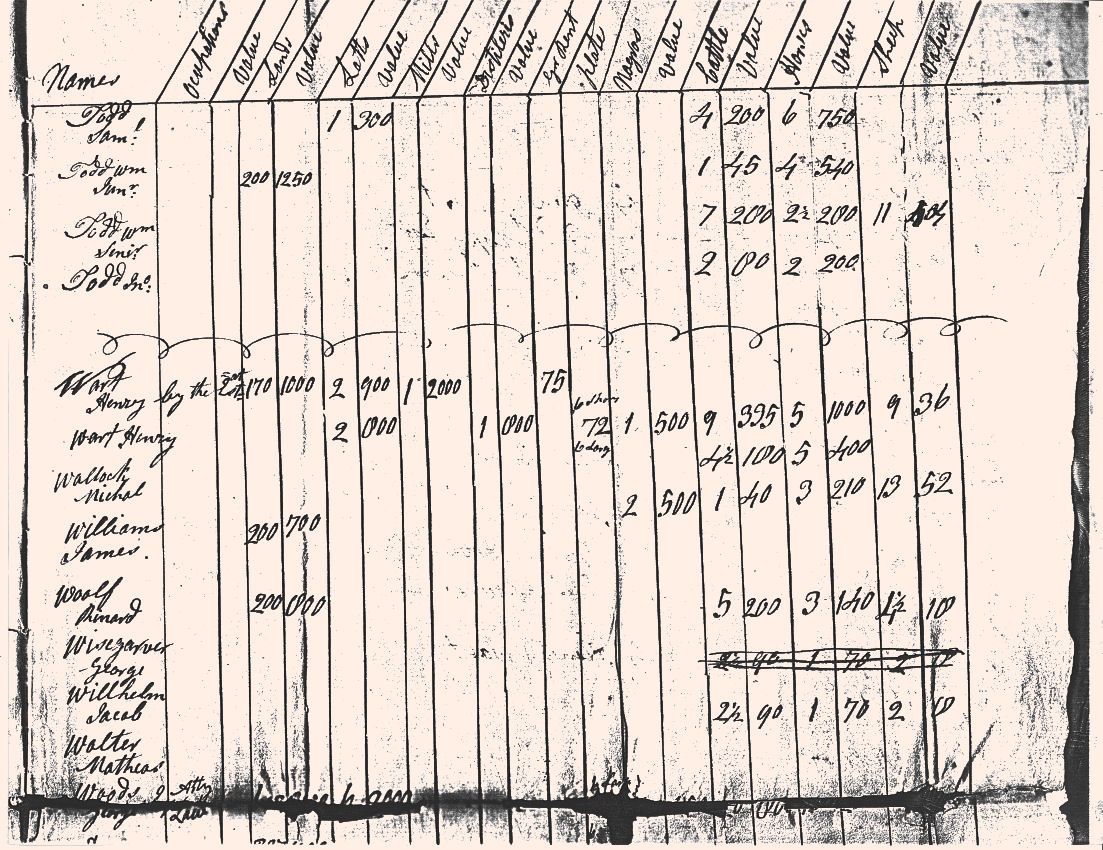 Names Occupations Value Lands Value Lotts Value Mills Value Distillers Value Gr Rent plate Negos Value Cattle Value Horses Value Sheep Value
Todd
Saml. 1 300 4 200 6 750
Todd Wm
Junr. 200 1250 1 45 4 540
Todd Wm
Senir 7 280 2½ 280 11
Todd Jno. 2 80 2 200
Wart
Henry by the 170 1000 2 900 1 2000 75
Wart Henry 2 800 1 800 72 1 500 9 395 5 1000 9 36
Wallock
Michal 4½ 180 5 400
2 500 1 40 3 210 13 52
Williams
James. 200 700
Woolf
Rinard 200 800 5 200 3 140 4½ 18
Wisegarver
George 2½ 90 1 70 2 8
Willhelm
Jacob 2½ 90 1 70 2 8
Walter
Mathias
Woods Atty
Geoy Law 2000